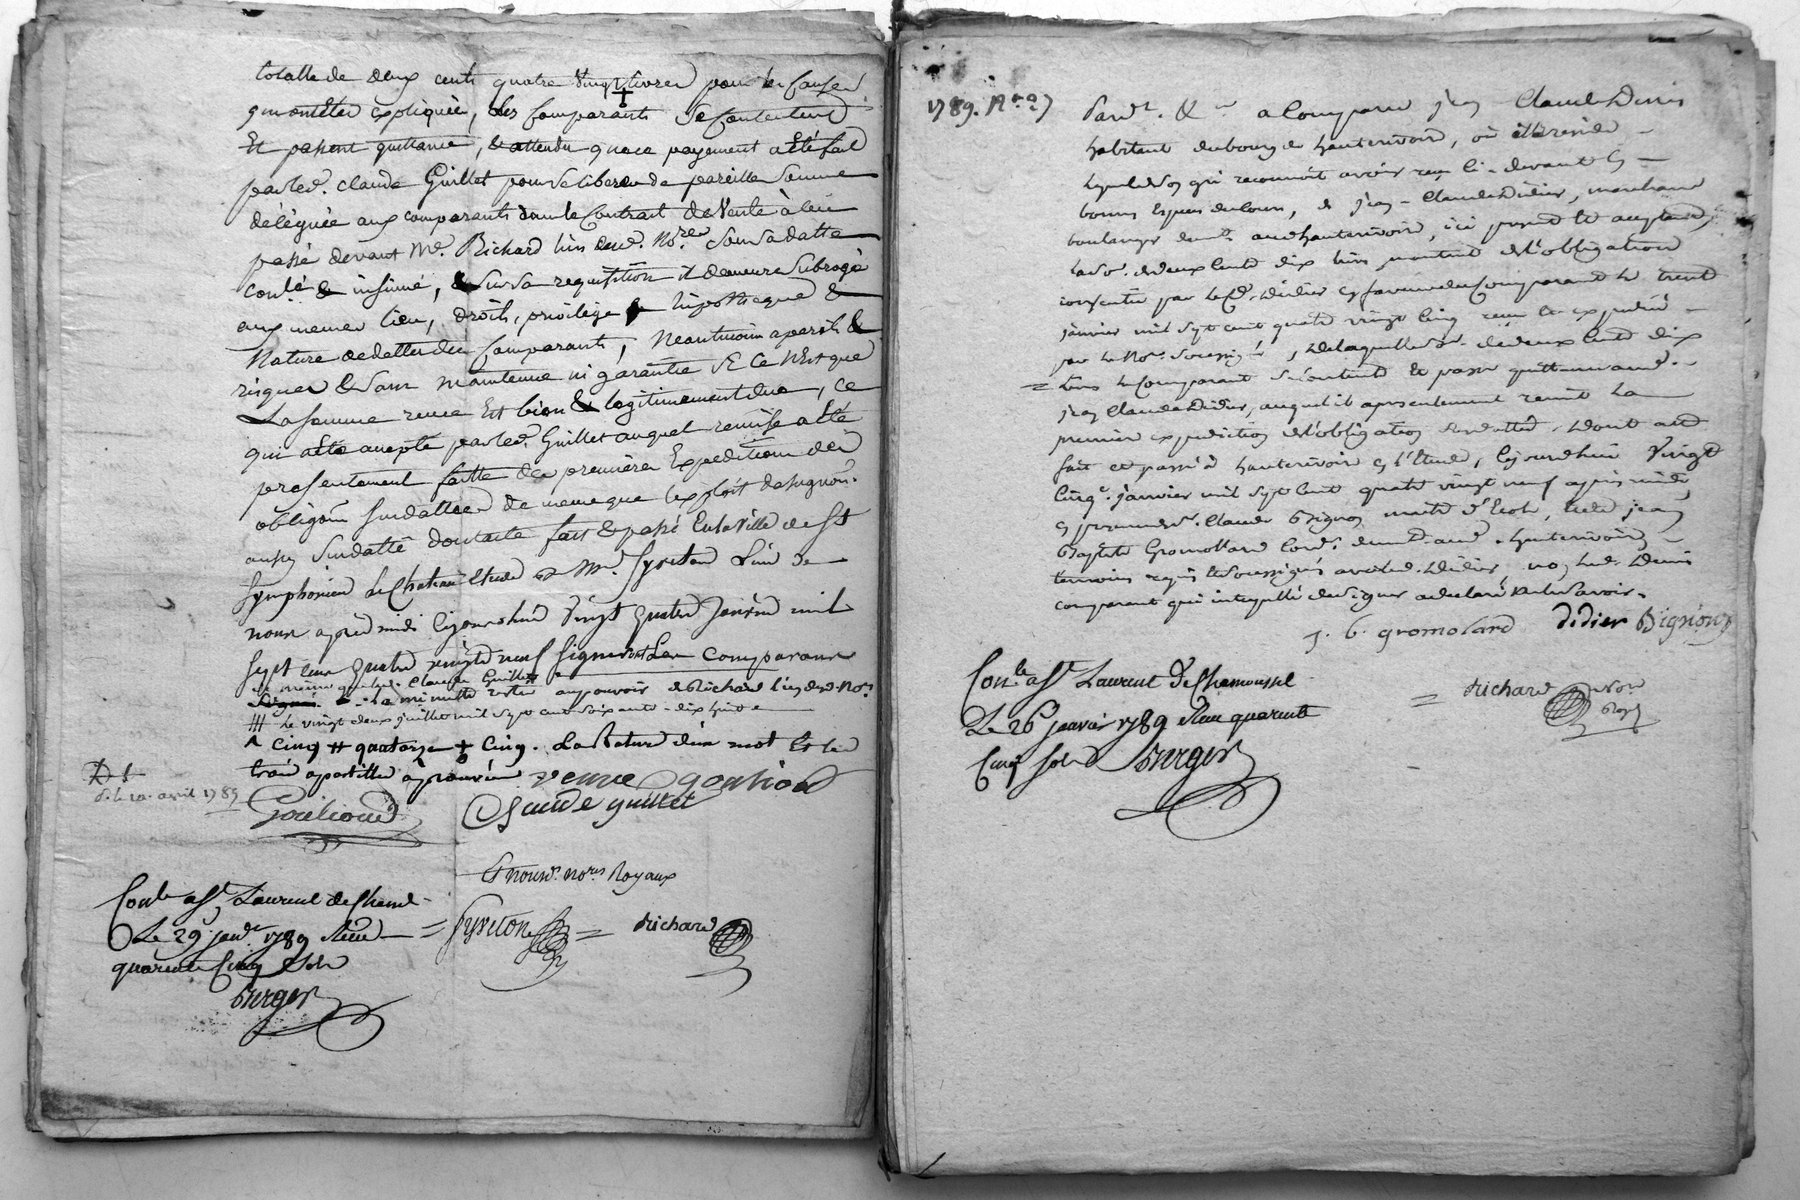 totalle de deux cents quatre Vingt livres pour les causes
qui ont été expliquées, les comparants se contentent
Et passent quittance, & attendu que ce payement a été fait
par led. Claude Guillet pour se liberer de pareille somme
déléguée aux comparants dans le Contrat de Vente à lui
passé devant Me. Richard l'un desd. Nores. sous sa datte
conlé & insinué, & sur sa requisition il demeure subrogé
aux memes lieu, droits, privilège & hipotheque &
Nature de dettes des Comparants, Neantmoins a perils &
risques & sans maintenue ni garantie Si Ce N'est que
La somme recue Est bien & legitimement due, ce
qui a été accepté par led. Guillet auquel remise a été
presentement faitte des premieres Expeditions des
obligaôns susdattées de meme que l'exploit d'assignôn.
aussy susdatté dont acte fait & passé En la Ville de St
Symphorien Le Chateau étude de Me. Syveton L'un de
nous après midi Cejourdhui Vingt quatre Janvier mil
sept cent quatre vingts neuf signé les comparants
de même que led. Claude Guillet
la minutte restée au pouvoir de Richard l'un desd. Nores
/// Le vingt deux juillet mil sept cent soixante dix huit
cinq # quatorze + cinq. La Rature d'un mot Et les
trois apostilles approuvées veuve goutiod
D. f.
d. le 10. avril 1789
Claude guillet
& nousd. nores Royaux
Conlé à St Laurent de Cham.
Le 29 janr. 1789 Recu
quarante Cinq Sols
Berger
= Syveton = Richard
1789. No. 27
Pardt. &a a Comparu jean Claude Denis
habitant du bourg de hauterivoire, où il reside
Lequel de gré reconnoit avoir reçu ci-devant en
bonnes Espèces du Cours, de jean-Claude Didier, marchand
boulanger demt. aud. hauterivoire, ici present & acceptant,
la so. de deux cents dix livres montant de l'obligation
consentie par led. Didier en faveur du Comparant le trente
janvier mil sept cent quatre vingt cinq recue & expediée
par le Nore. Soussigné, de laquelle so. de deux cents dix
= livres le Comparant se contente Et passe quittance aud.
jean Claude Didier, auquel il a presentement remis la
premiere expedition de l'obligation susdattée. dont acte
fait et passé à hauterivoire en l'Etude, Cejourdhui Vingt
Cinq. janvier mil sept cent quatre vingt neuf après midi,
en presence de sr. Claude Bignon maitre d'Ecole, & de jean
Baptiste Gromollard Cord. demt. aud. hauterivoire
temoins requis & soussignés avec led. Didier non led. Denis
comparant qui interpellé de signer a declaré ne le savoir.
j. b. gromolard didier Bignon
Conlé à St. Laurent De Chamousset
Le 26 janvier 1789 Recu quarante
Cinq Sols Berger
= Richard Nore
Royl